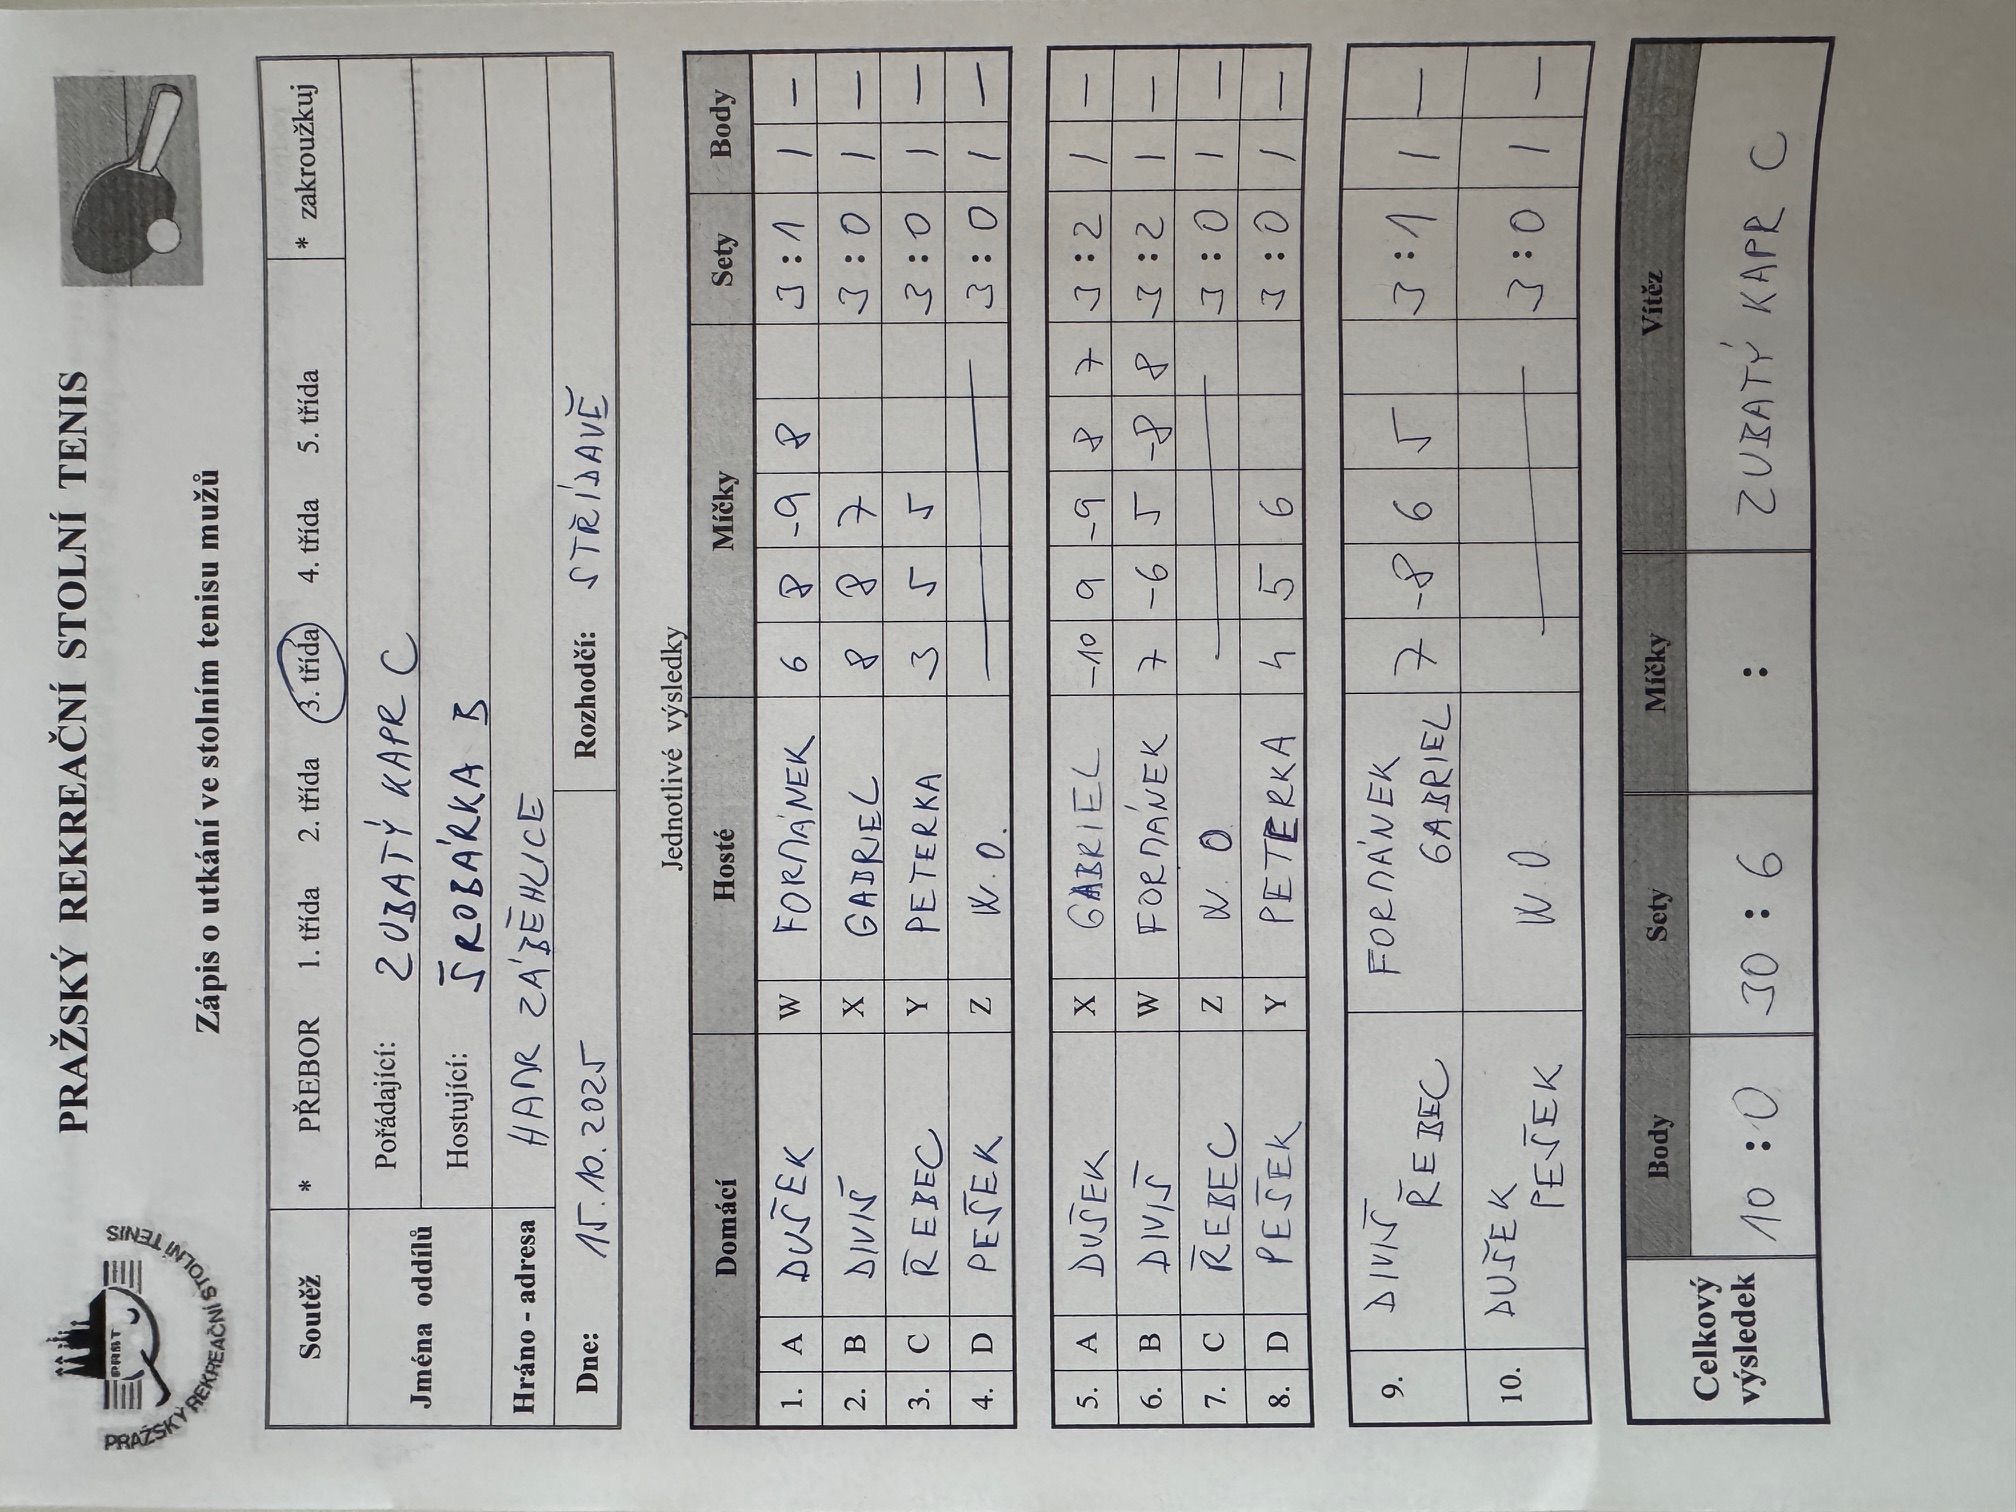 PRAŽSKÝ REKREAČNÍ STOLNÍ TENIS
PRST
PRAŽSKÝ REKREAČNÍ STOLNÍ TENIS
Zápis o utkání ve stolním tenisu mužů
Soutěž * PŘEBOR 1. třída 2. třída 3. třída 4. třída 5. třída * zakroužkuj
Jména oddílů Pořádající: ZUBATÝ KAPR C
Hostující: ŠROBÁRKA B
Hráno - adresa HAMR ZÁBĚHLICE
Dne: 15.10.2025 Rozhodčí: STŘÍDAVĚ
Jednotlivé výsledky
Domácí Hosté Míčky Sety Body
1. A DUŠEK W FORMÁNEK 6 8 -9 8 3:1 1 –
2. B DIVIŠ X GABRIEL 8 8 7 3:0 1 –
3. C ŘEBEC Y PETERKA 3 5 5 3:0 1 –
4. D PEŠEK Z W.O. 3:0 1 –
5. A DUŠEK X GABRIEL -10 9 -9 8 7 3:2 1 –
6. B DIVIŠ W FORMÁNEK 7 -6 5 -8 8 3:2 1 –
7. C ŘEBEC Z W.O. 3:0 1 –
8. D PEŠEK Y PETERKA 4 5 6 3:0 1 –
9. DIVIŠ FORMÁNEK 7 -8 6 5 3:1 1 –
ŘEBEC GABRIEL
10. DUŠEK W.O 3:0 1 –
PEŠEK
Celkový výsledek Body Sety Míčky Vítěz
10:0 30:6 : ZUBATÝ KAPR C